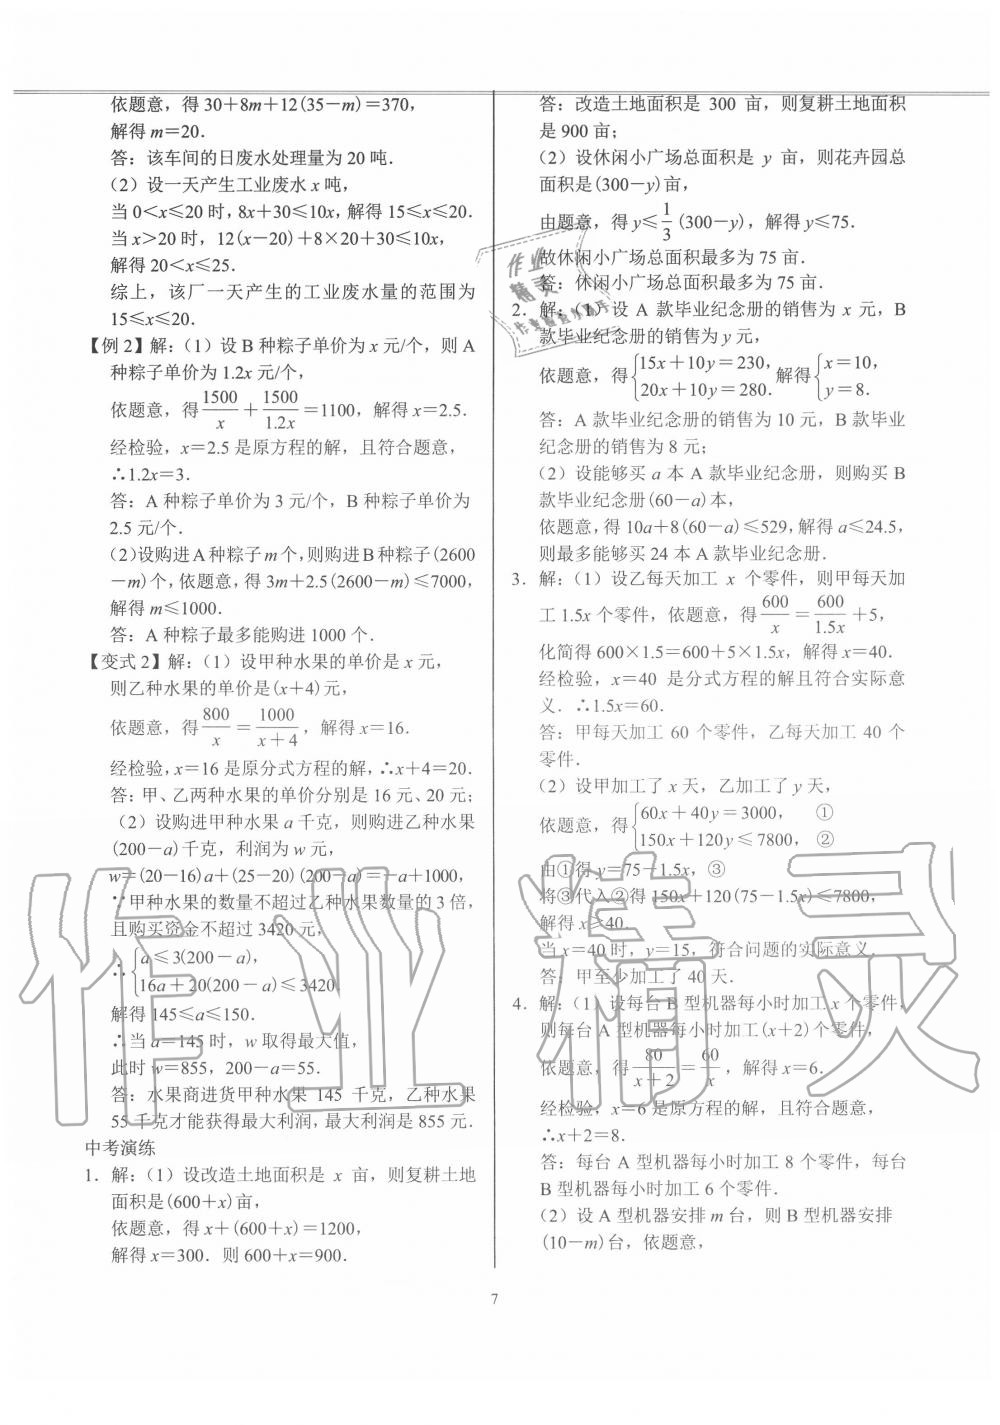 依题意，得 30＋8m＋12(35－m)＝370，
解得 m＝20．
答：该车间的日废水处理量为 20 吨．
（2）设一天产生工业废水 x 吨，
当 0＜x≤20 时，8x＋30≤10x，解得 15≤x≤20．
当 x＞20 时，12(x－20)＋8×20＋30≤10x，
解得 20＜x≤25．
综上，该厂一天产生的工业废水量的范围为
15≤x≤20．
【例 2】解：（1）设 B 种粽子单价为 x 元/个，则 A
种粽子单价为 1.2x 元/个，
依题意，得 1500/x ＋ 1500/1.2x ＝1100，解得 x＝2.5．
经检验，x＝2.5 是原方程的解，且符合题意，
∴1.2x＝3．
答：A 种粽子单价为 3 元/个，B 种粽子单价为
2.5 元/个．
（2）设购进A种粽子m个，则购进B种粽子(2600
－m)个，依题意，得 3m＋2.5(2600－m)≤7000，
解得 m≤1000．
答：A 种粽子最多能购进 1000 个．
【变式 2】解：（1）设甲种水果的单价是 x 元，
则乙种水果的单价是(x＋4)元，
依题意，得 800/x ＝ 1000/(x＋4)，解得 x＝16．
经检验，x＝16 是原分式方程的解，∴x＋4＝20．
答：甲、乙两种水果的单价分别是 16 元、20 元；
（2）设购进甲种水果 a 千克，则购进乙种水果
(200－a)千克，利润为 w 元，
w＝(20－16)a＋(25－20)(200－a)＝－a＋1000，
∵甲种水果的数量不超过乙种水果数量的 3 倍，
且购买资金不超过 3420 元，
∴{a≤3(200－a)，
16a＋20(200－a)≤3420．
解得 145≤a≤150．
∴当 a＝145 时，w 取得最大值，
此时 w＝855，200－a＝55．
答：水果商进货甲种水果 145 千克，乙种水果
55 千克才能获得最大利润，最大利润是 855 元．
中考演练
1．解：（1）设改造土地面积是 x 亩，则复耕土地
面积是(600＋x)亩，
依题意，得 x＋(600＋x)＝1200，
解得 x＝300．则 600＋x＝900．
答：改造土地面积是 300 亩，则复耕土地面积
是 900 亩；
（2）设休闲小广场总面积是 y 亩，则花卉园总
面积是(300－y)亩，
由题意，得 y≤1/3(300－y)，解得 y≤75．
故休闲小广场总面积最多为 75 亩．
答：休闲小广场总面积最多为 75 亩．
2．解：（1）设 A 款毕业纪念册的销售为 x 元，B
款毕业纪念册的销售为 y 元，
依题意，得{15x＋10y＝230，
20x＋10y＝280．解得{x＝10，
y＝8．
答：A 款毕业纪念册的销售为 10 元，B 款毕业
纪念册的销售为 8 元；
（2）设能够买 a 本 A 款毕业纪念册，则购买 B
款毕业纪念册(60－a)本，
依题意，得 10a＋8(60－a)≤529，解得 a≤24.5，
则最多能够买 24 本 A 款毕业纪念册．
3．解：（1）设乙每天加工 x 个零件，则甲每天加
工 1.5x 个零件，依题意，得 600/x ＝ 600/1.5x ＋5，
化简得 600×1.5＝600＋5×1.5x，解得 x＝40．
经检验，x＝40 是分式方程的解且符合实际意
义．∴1.5x＝60．
答：甲每天加工 60 个零件，乙每天加工 40 个
零件．
（2）设甲加工了 x 天，乙加工了 y 天，
依题意，得{60x＋40y＝3000， ①
150x＋120y≤7800， ②
由①得 y＝75－1.5x，③
将③代入②得 150x＋120(75－1.5x)≤7800，
解得 x≥40．
当 x＝40 时，y＝15，符合问题的实际意义．
答：甲至少加工了 40 天．
4．解：（1）设每台 B 型机器每小时加工 x 个零件，
则每台 A 型机器每小时加工(x＋2)个零件，
依题意，得 80/(x＋2) ＝ 60/x，解得 x＝6．
经检验，x＝6 是原方程的解，且符合题意，
∴x＋2＝8．
答：每台 A 型机器每小时加工 8 个零件，每台
B 型机器每小时加工 6 个零件．
（2）设 A 型机器安排 m 台，则 B 型机器安排
(10－m)台，依题意，
7
作业精灵
作业
精灵